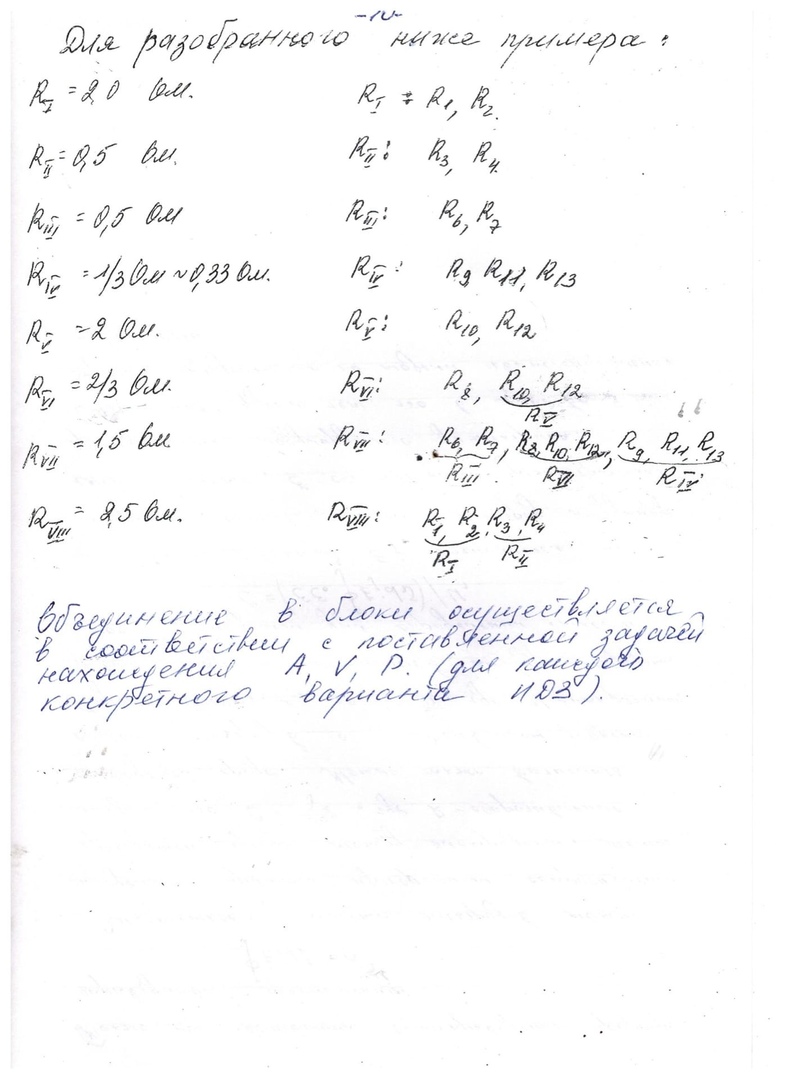 -10-
Для разобранного ниже примера:
R_I = 2,0 Ом. R_I : R1, R2.
R_II = 0,5 Ом. R_II: R3, R4.
R_III = 0,5 Ом R_III: R6, R7
R_IV = 1/3 Ом ~ 0,33 Ом. R_IV: R9 R11, R13
R_V = 2 Ом. R_V: R10, R12
R_VI = 2/3 Ом. R_VI: R8, R10, R12
R_V
R_VII = 1,5 Ом R_VII: R6, R7, R8, R10, R12, R9, R11, R13
R_III R_VI R_IV
R_VIII = 2,5 Ом. R_VIII: R1, R2, R3, R4
R_I R_II
Объединение в блоки осуществляется
в соответствии с поставленной задачей
нахождения A, V, P. (для каждого
конкретного варианта ИДЗ).